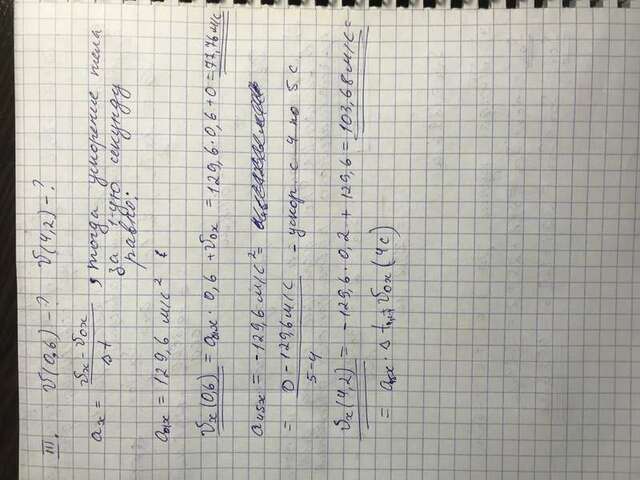 III. V(0,6) - ? V(4,2) - ?
aₓ = (Vₓ - V₀ₓ) / Δt , тогда ускорение тела
за 1-ую секунду
равно:
a₀₁ₓ = 129,6 м/с²
Vₓ(0,6) = a₀₁ₓ · 0,6 + V₀ₓ = 129,6 · 0,6 + 0 = 77,76 м/с
a₄₅ₓ = -129,6 м/с² =
= (0 - 129,6 м/с) / (5-4) - ускор с 4 по 5 с
Vₓ(4,2) = -129,6 · 0,2 + 129,6 = 103,68 м/с =
= aₓ · Δt + V₀ₓ(4с)